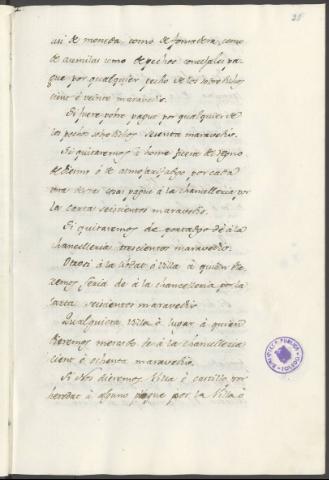 asi de moneda, como de fonsadera, como
de acemilas como de pechos concejales pa-
gue por qualquier pecho de los sobredichos
cient è veinte maravedis.
Si fuere pobre pague por qualquier de
los pechos sobredichos sesenta maravedis.
Si quitaremos à home fuera de reyno
de diezmo ò de almojarifadgo por cada
una de estas cosas pague à la chancelleria por
la carta seiscientos maravedis.
Si quitaremos de portadgo dé à la
chancelleria trescientos maravedis.
Otrosi à la cibdat ò villa à quien die-
remos feria dé à la chancelleria por la
carta seiscientos maravedis.
Qualquiera villa ò lugar à quien
dieremos mercado dé à la chancelleria
cient è ochenta maravedis.
Si Nos dieremos Villa ò castillo por
heredat à alguno pague por la Villa ò
BIBLIOTECA PUBLICA
TOLEDO